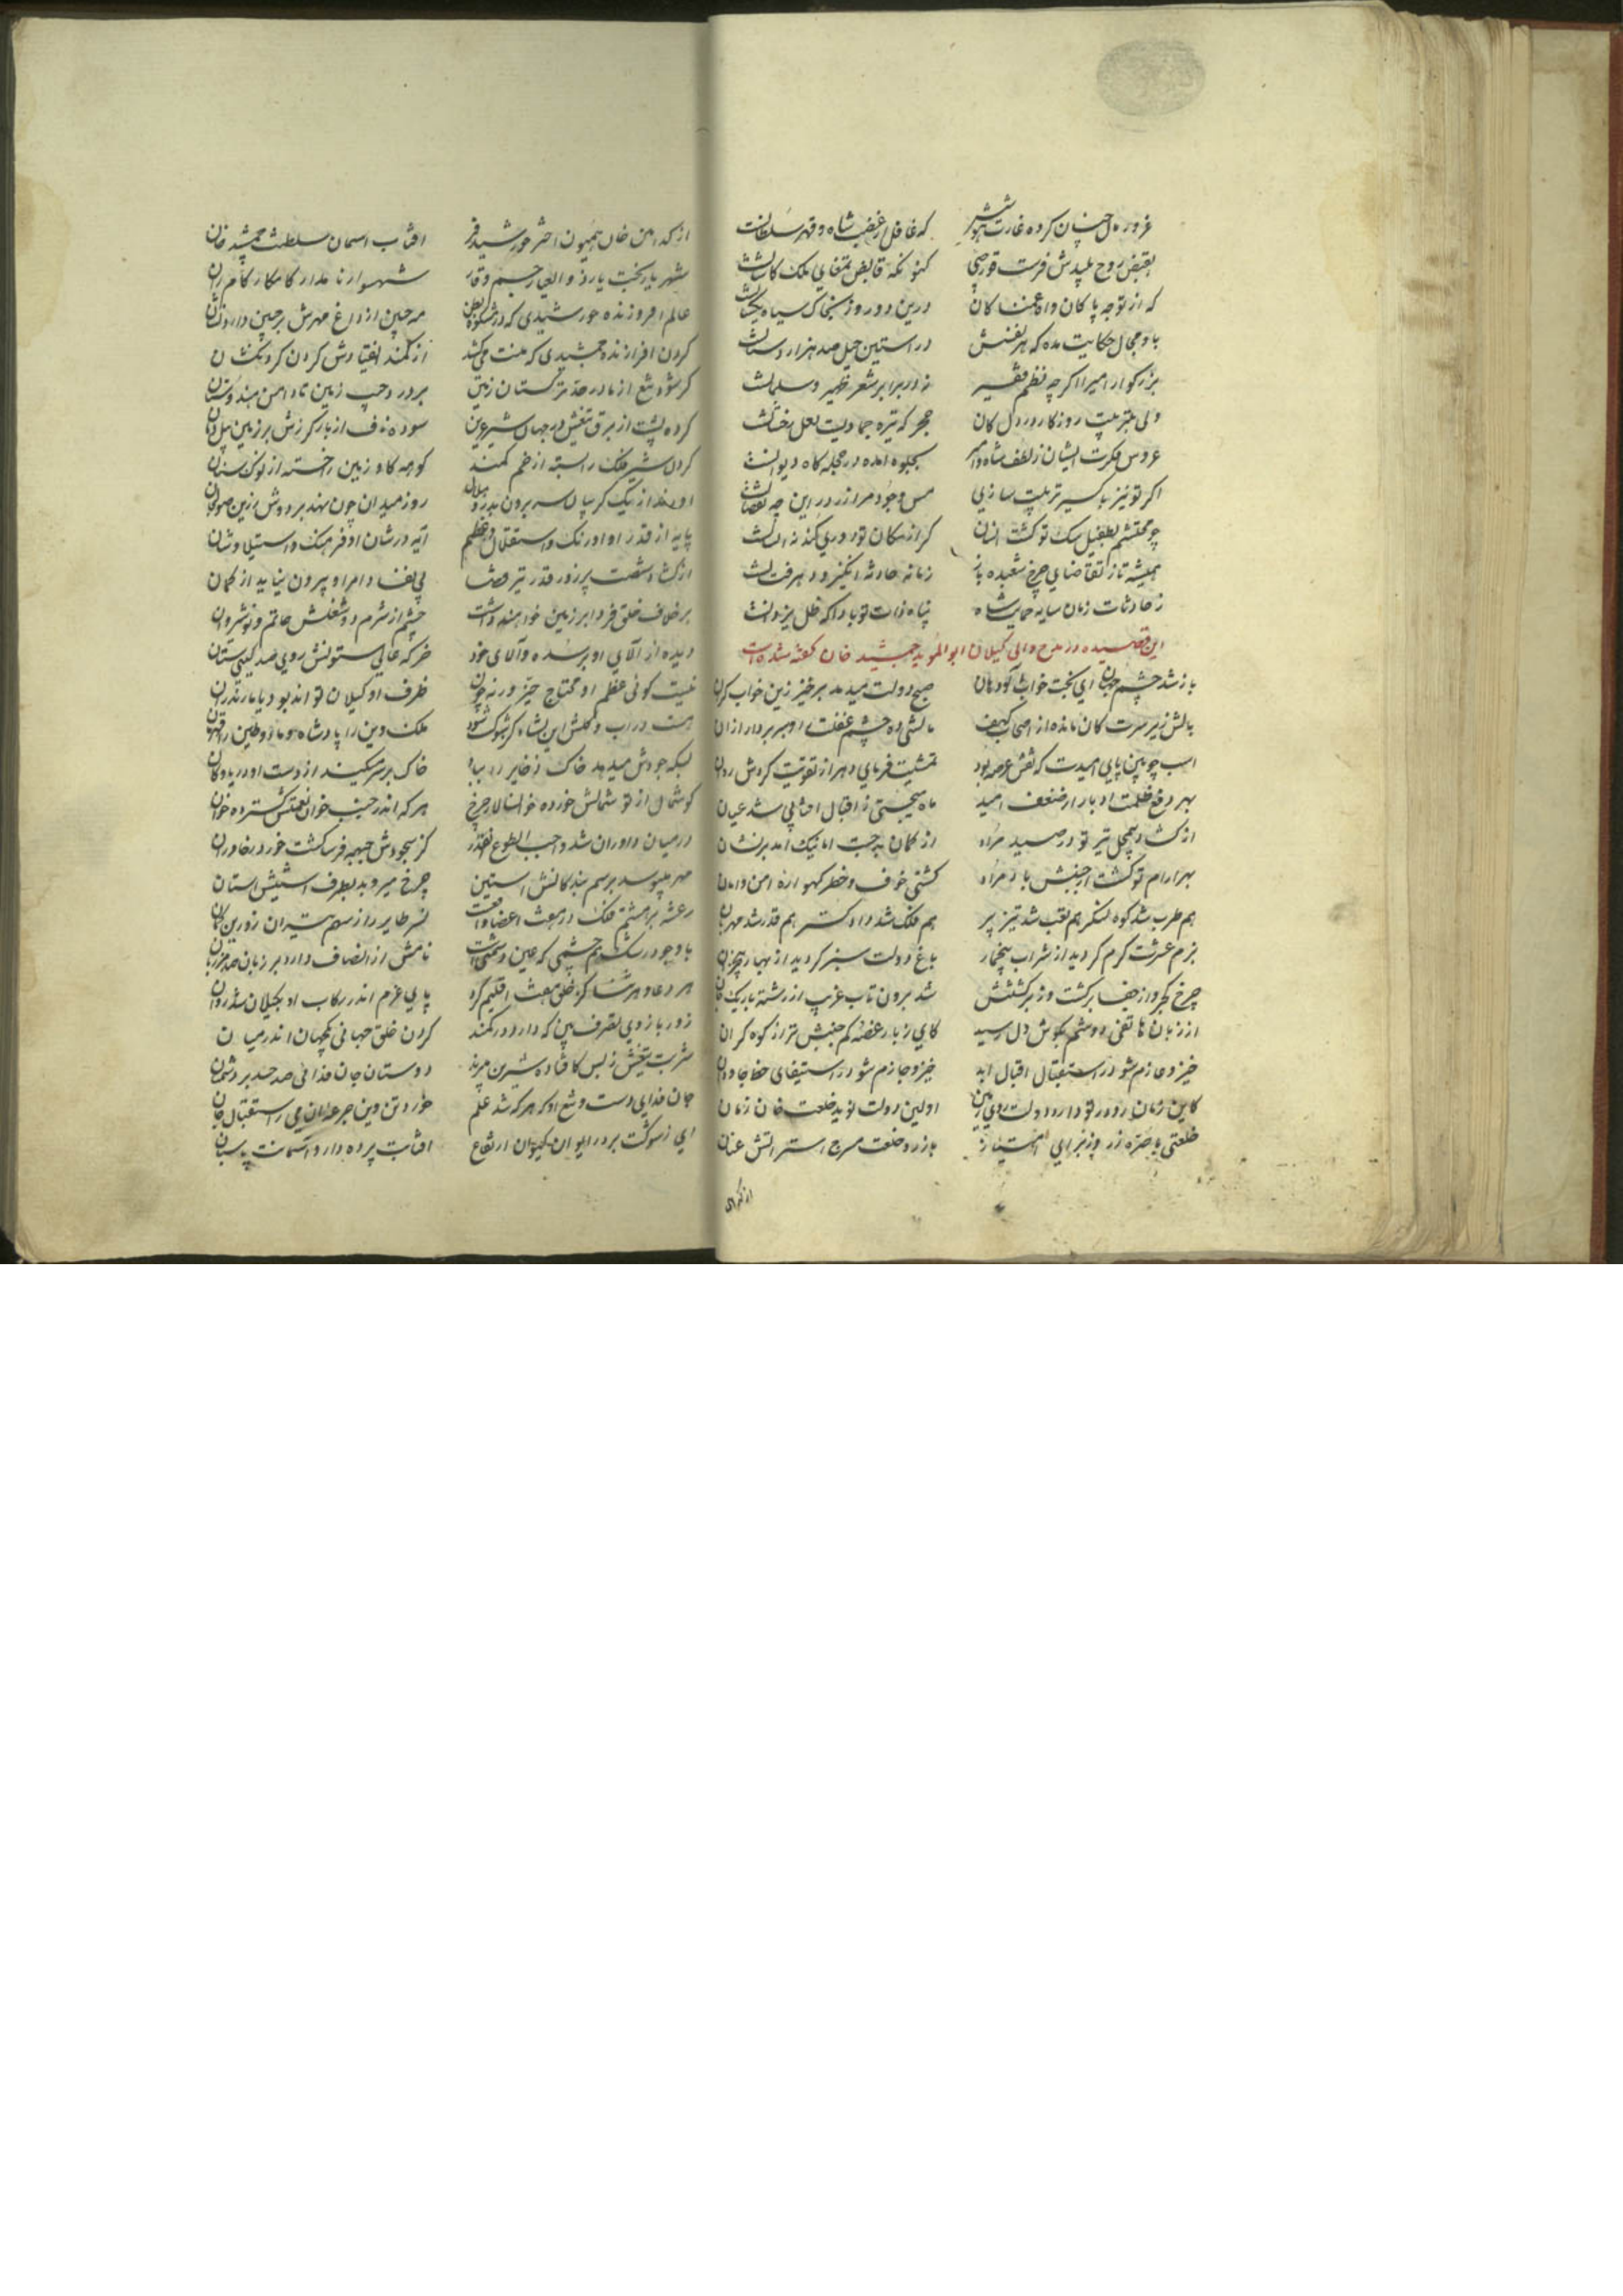 غرور مال چنان کرده غارت هوش که غافل ز غضب شاه و قهر سلطانست
بقبض روح پلیدش فرست قورچی کنونکه قابض تمغای ملک کاشانست
که از توجه پاکان درین دو روز بخاک سیاه یکسانست
باو مجال حکایت مده که هر نفسش در آستین حیل صد هزار دستانست
بزرکوار امیرا اکرچه نظم فقیر نه در برابر شعر ظهیر و سلمانست
ولی بتربیت روزکار در دل کان حجر که تیره جمادیست لعل رخشانست
عروس فکرت ایشان ز لطف شاه و امیر بجلوه آمده در حجله کاه دیوانست
اکر تو نیز باکسیر تربیت سازی مس وجود مرا زر درین چه نقصانست
چو محتشم بطفیل سک تو کشت انسان کر از مکان تو دوری کند نه انسانست
همیشه تا ز تقاضای چرخ شعبده باز زمانه حادثه انکیز و دهر فتانست
ز حادثات زمان سایه حمایت شاه پناه ذات تو بادا که ظل یزدانست
این قصیده در مدح والی کیلان ابوالموید جمشید خان کفته شده است
باز شد چشم جهان ای بخت خواب آلود هان صبح دولت میدمد برخیز زین خواب کران
بالش زیر سرت کان مانده از اصحاب کهف مالشی ده چشم غفلت را و سر بردار از آن
اسب چوبین پای امیدت که نعش عرصه بود تمشیت فرمای دهر از تقویت کردش روان
بهر دفع ظلمت ادبار ار ضعف امید ماه بختی ز اقبال آفتابی شد عیان
از کشاد سهل تیر تو در صید مراد از کمان پر جست اما نیک آمد بر نشان
بهر آرام تو کشت از جنبش باد مراد کشتی خوف و خطر کهواره امن و امان
هم طرب شد کوه لنکر هم تعب شد تیز پر هم فلک شد دادکستر هم قدر شد مهربان
بزم عشرت کرم کردید از شراب بیخمار باغ دولت سبز کردید از بهار بیخزان
چرخ کجرو از جفا برکشت وز برکشتنش شد برون تاب غریب از رشته باریک جان
از زبان هاتفی دوشم بکوش دل رسید کای ز بار غصه کم جنبش تر از کوه کران
خیز و عازم شو در استقبال اقبال ابد خیز و جازم شو در استیفای حظ جاودان
کاین زمان رو در تو دارد دولت روی زمین اولین دولت نوید خلعت خان زمان
خلعتی با صره زر با زر و خلعت سرج استر آتش عنان
از کدامین خان همیون اختر خورشید فر آفتاب آسمان سلطنت جمشید خان
شهریار بخت یار ذوالعز جسم وقار شهسوار نامدار کامکار کامران
عالم افروزنده خورشیدی که مه جبین از داغ مهرش بر جبین دارد نشان
کردن افرازنده جمشیدی که منت میکشد از کمند انقیادش کردن کردنکشان
کر شود تیغ از مادر حد ترکستان زمین بر درد جیب زمین تا دامن هندوستان
کرده پشت از برق تیغش در جهان شیر عرین سوده ناف از بار کرزش بر زمین پیل دمان
کردن شیر فلک را بسته از خم کمند کوهه کاو زمین را خسته از نوک سنان
او فتد از یک کریبان سر برون بدر و هلال روز میدان چون نهد بر دوش زرین صولجان
پایه از قدر او اورنک و استقلال و عظم آیه در شان او فرهنک و استیلا و شان
از کشاد شصت پر زور قدر تیر قضا بی نفاذ امر او بیرون نیاید از کمان
بر خلاف خلق فردا بر زمین خواهند داشت چشم از شرم در شغلش حاتم و نوشیروان
دیده از آلای او بر سده والای خود خرکه عالی ستونش روی صد کیتی ستان
نیست کوئی عظم او محتاج حیز ورنه چون ظرف او کیلان تواند بود یا مازندران
ملک و دین را پادشاه و ماء و طین را قهرمان
بسکه جودش میدهد خاک ذخایر را بباد خاک بر سر میکنند از دست او دریا و کان
کوشمال از تو شمالش خورده خوانسالار چرخ هر که اندر جنب خوان نعمتش کسترده خوان
در میان داوران شد واجب الطوع آنقدر کز سجودش جبهه فرسا کشت خور در خاوران
مهر میبوسد برسم بندکانش آستین چرخ میروبد بطرف آستینش آستان
رعشه بر هشتم فلک در هفت اعضا واقعست نسر طایر را ز سهم تیر آن زورین کمان
با وجود رشک هم چشمی که عین دشمنیست نامش از انصاف دارد بر زبان صد مرزبان
هر دعا و هر ثنا کز خلق هفت اقلیم کرد پای عزم اندر رکاب او بکیلان شد روان
زور بازوی تصرف بین که دارد در کمند کردن خلق جهانی یکجهان اندر میان
شربت تیغش ز بس کافتاده شیرین میزند دوستان جان فدائی صد حسد بر دشمنان
جان فدای دست و تیغ او که هر که شد علم خوردتن وین جرعه را زان می در استقبال جان
ای ز شوکت بر در ایوان کیوان ارتفاع آفتابت پرده دار و آسمانت پاسبان
از کدامین